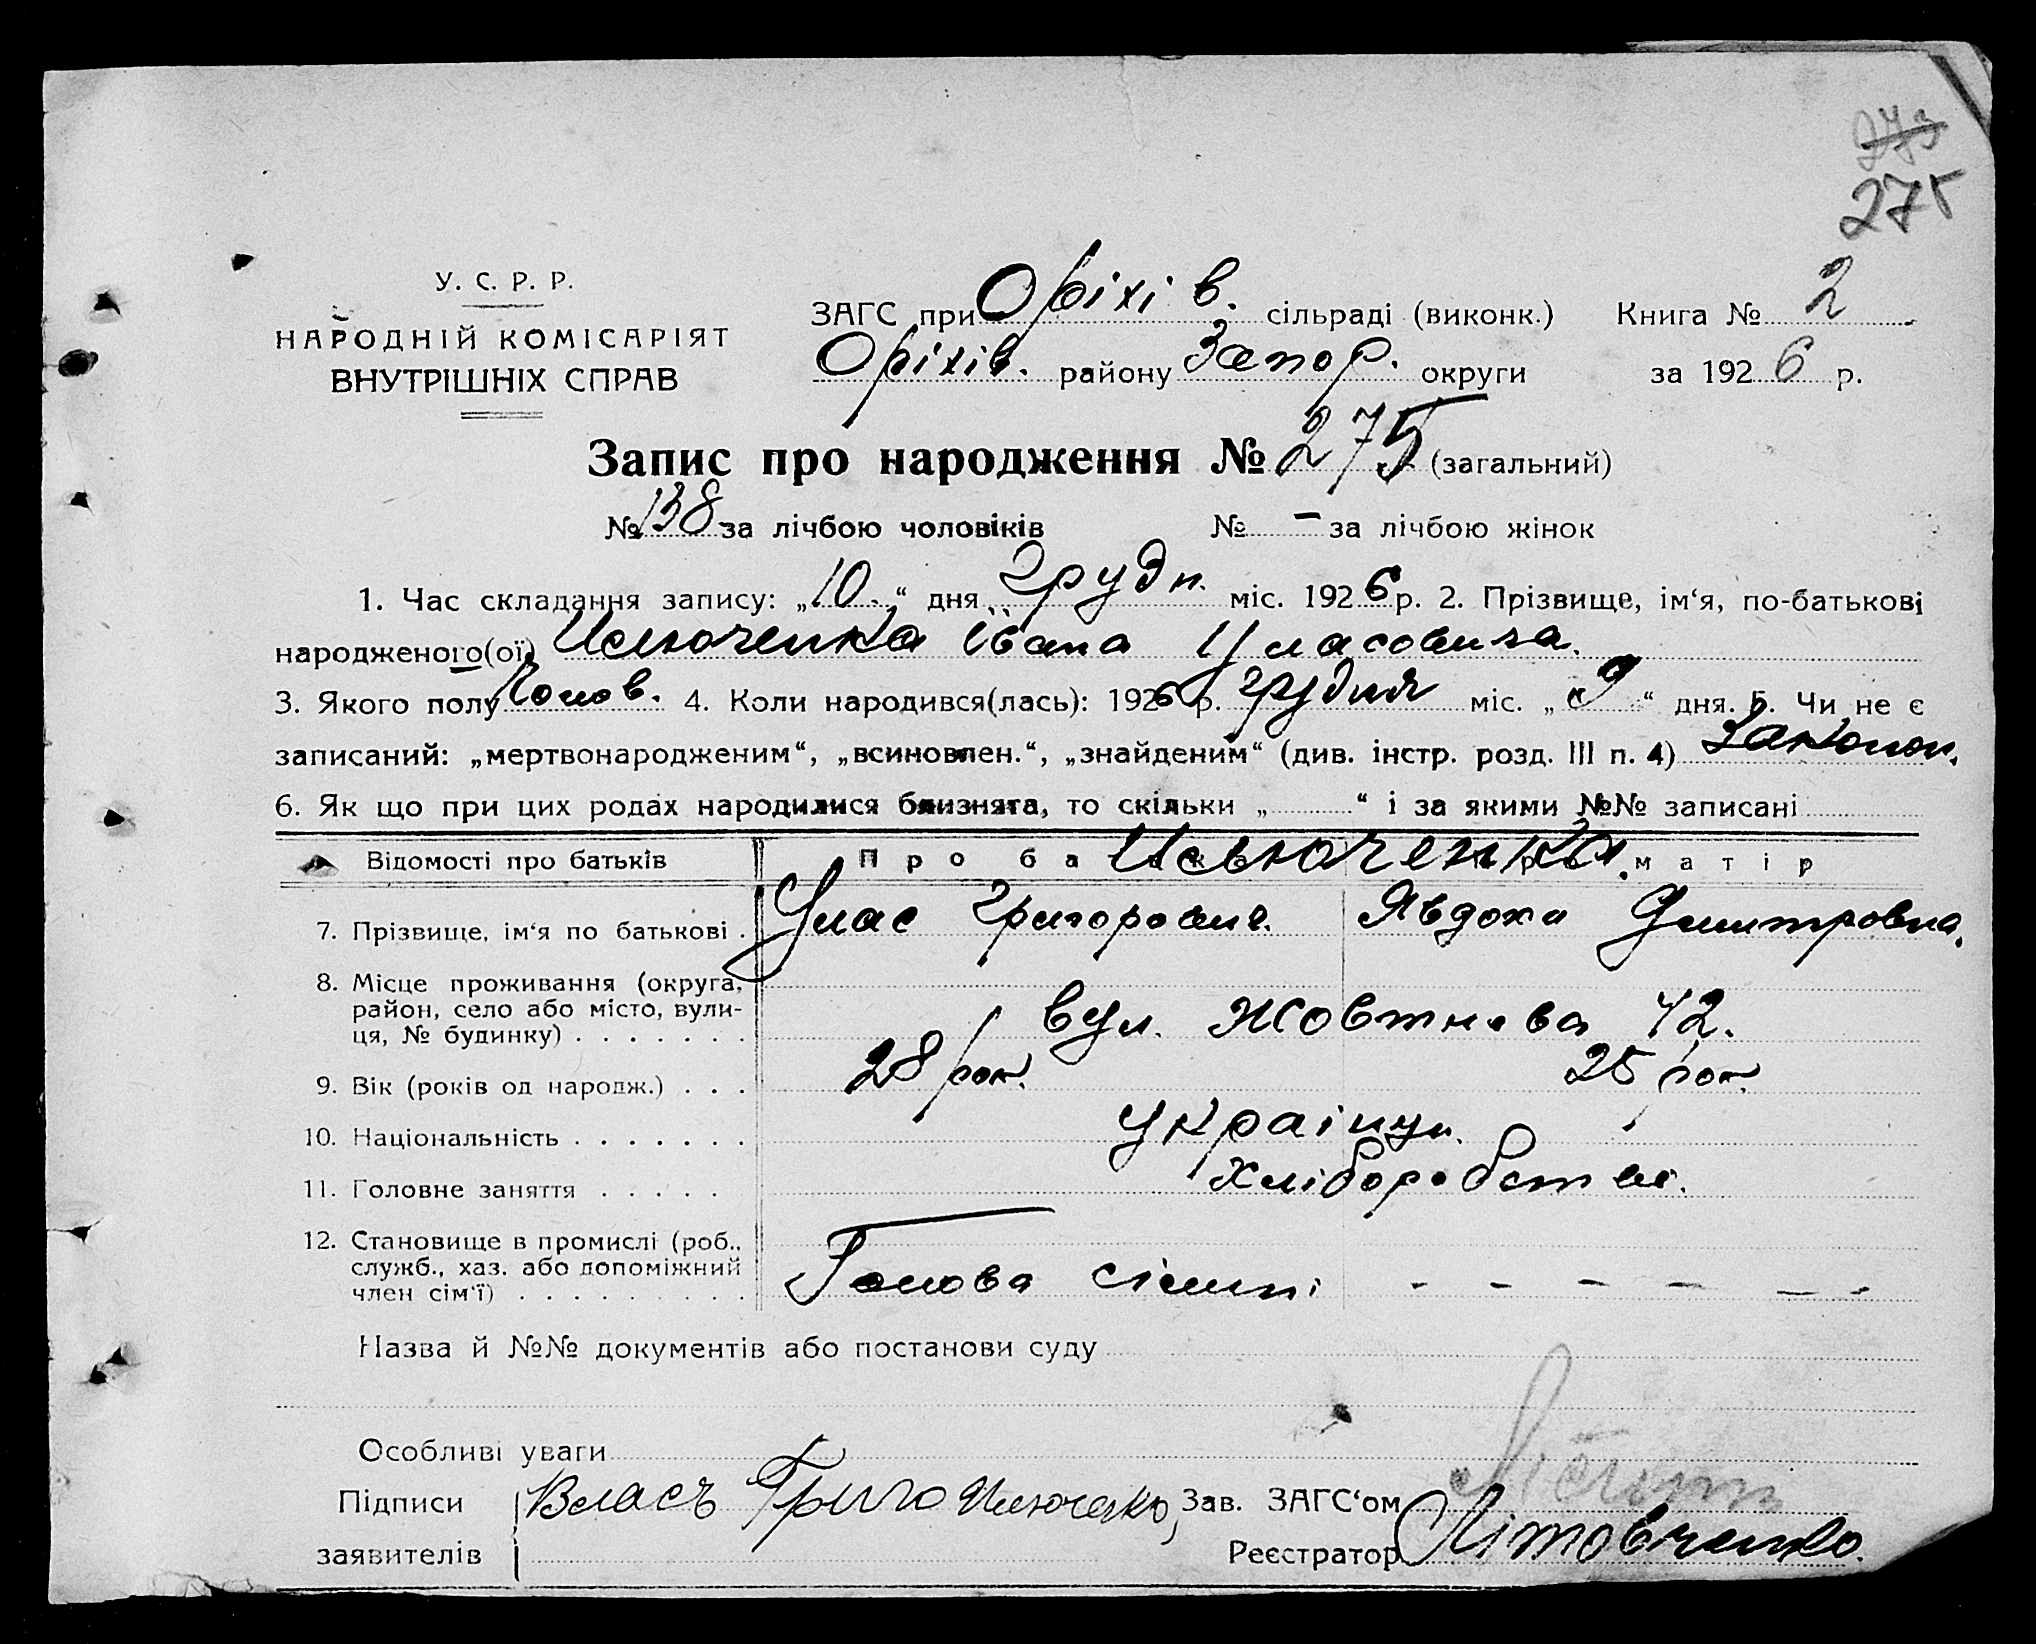 273
275
У. С. Р. Р.
НАРОДНІЙ КОМІСАРІЯТ
ВНУТРІШНІХ СПРАВ
ЗАГС при Оріхів. сільраді (виконк.) Книга № 2
Оріхів. району Запор. округи за 1926 р.
Запис про народження № 275 (загальний)
№ 138 за лічбою чоловіків № - за лічбою жінок
1. Час складання запису: „10.“ дня грудн. міс. 1926 р. 2. Прізвище, ім‘я, по-батькові
народженого(ої) Івана Уласовича.
3. Якого полу Чолов. 4. Коли народився(лась): 1926 р. грудня міс. „9“ дня. 5. Чи не є
записаний: „мертвонародженим“, „всиновлен.“, „знайденим“ (див. інстр. розд. III п. 4)
6. Як що при цих родах народилися близнята, то скільки „ “ і за якими №№ записані
Відомості про батьків Про батька Про матір
7. Прізвище, ім‘я по батькові . Улас Григорович. Явдоха Димитровна.
8. Місце проживання (округа,
район, село або місто, вули-
ця, № будинку) . . . . . . . вул. Жовтнева 42.
9. Вік (років од народж.) . . . 28 рок. 25 рок.
10. Національність . . . . . . . українци.
11. Головне заняття . . . . . хліборобств.
12. Становище в промислі (роб.,
служб., хаз. або допоміжний
член сім‘ї) . . . . . . . . . Голова сімні - - - - - -
Назва й №№ документів або постанови суду
Особливі уваги
Підписи Власъ Григо Зав. ЗАГС‘ом
заявителів Реєстратор Літовченко.